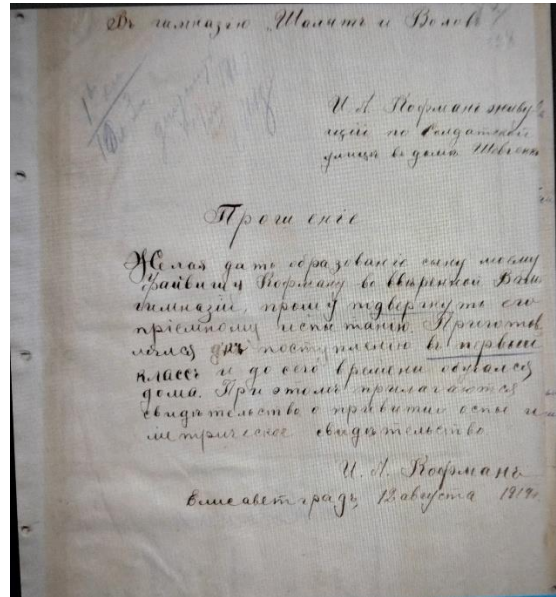 Въ гимназію „Шалитъ и Волов
И. А. Кофмана живу
щій по Солдатской
улицѣ въ домѣ Шевченк
Прошеніе
Желая дать образованіе сыну моему
Файвишу Кофману во ввѣренной Вами
гимназіи, прошу подвергнуть его
пріемному испытанію. Приготов
лялся для поступленія въ первый
классъ и до сего времени обучался
дома. При этомъ прилагаются
свидѣтельство о привитіи оспы и
метрическое свидѣтельство
И. А. Кофманъ
Елисаветградъ, 12 августа 1919г.